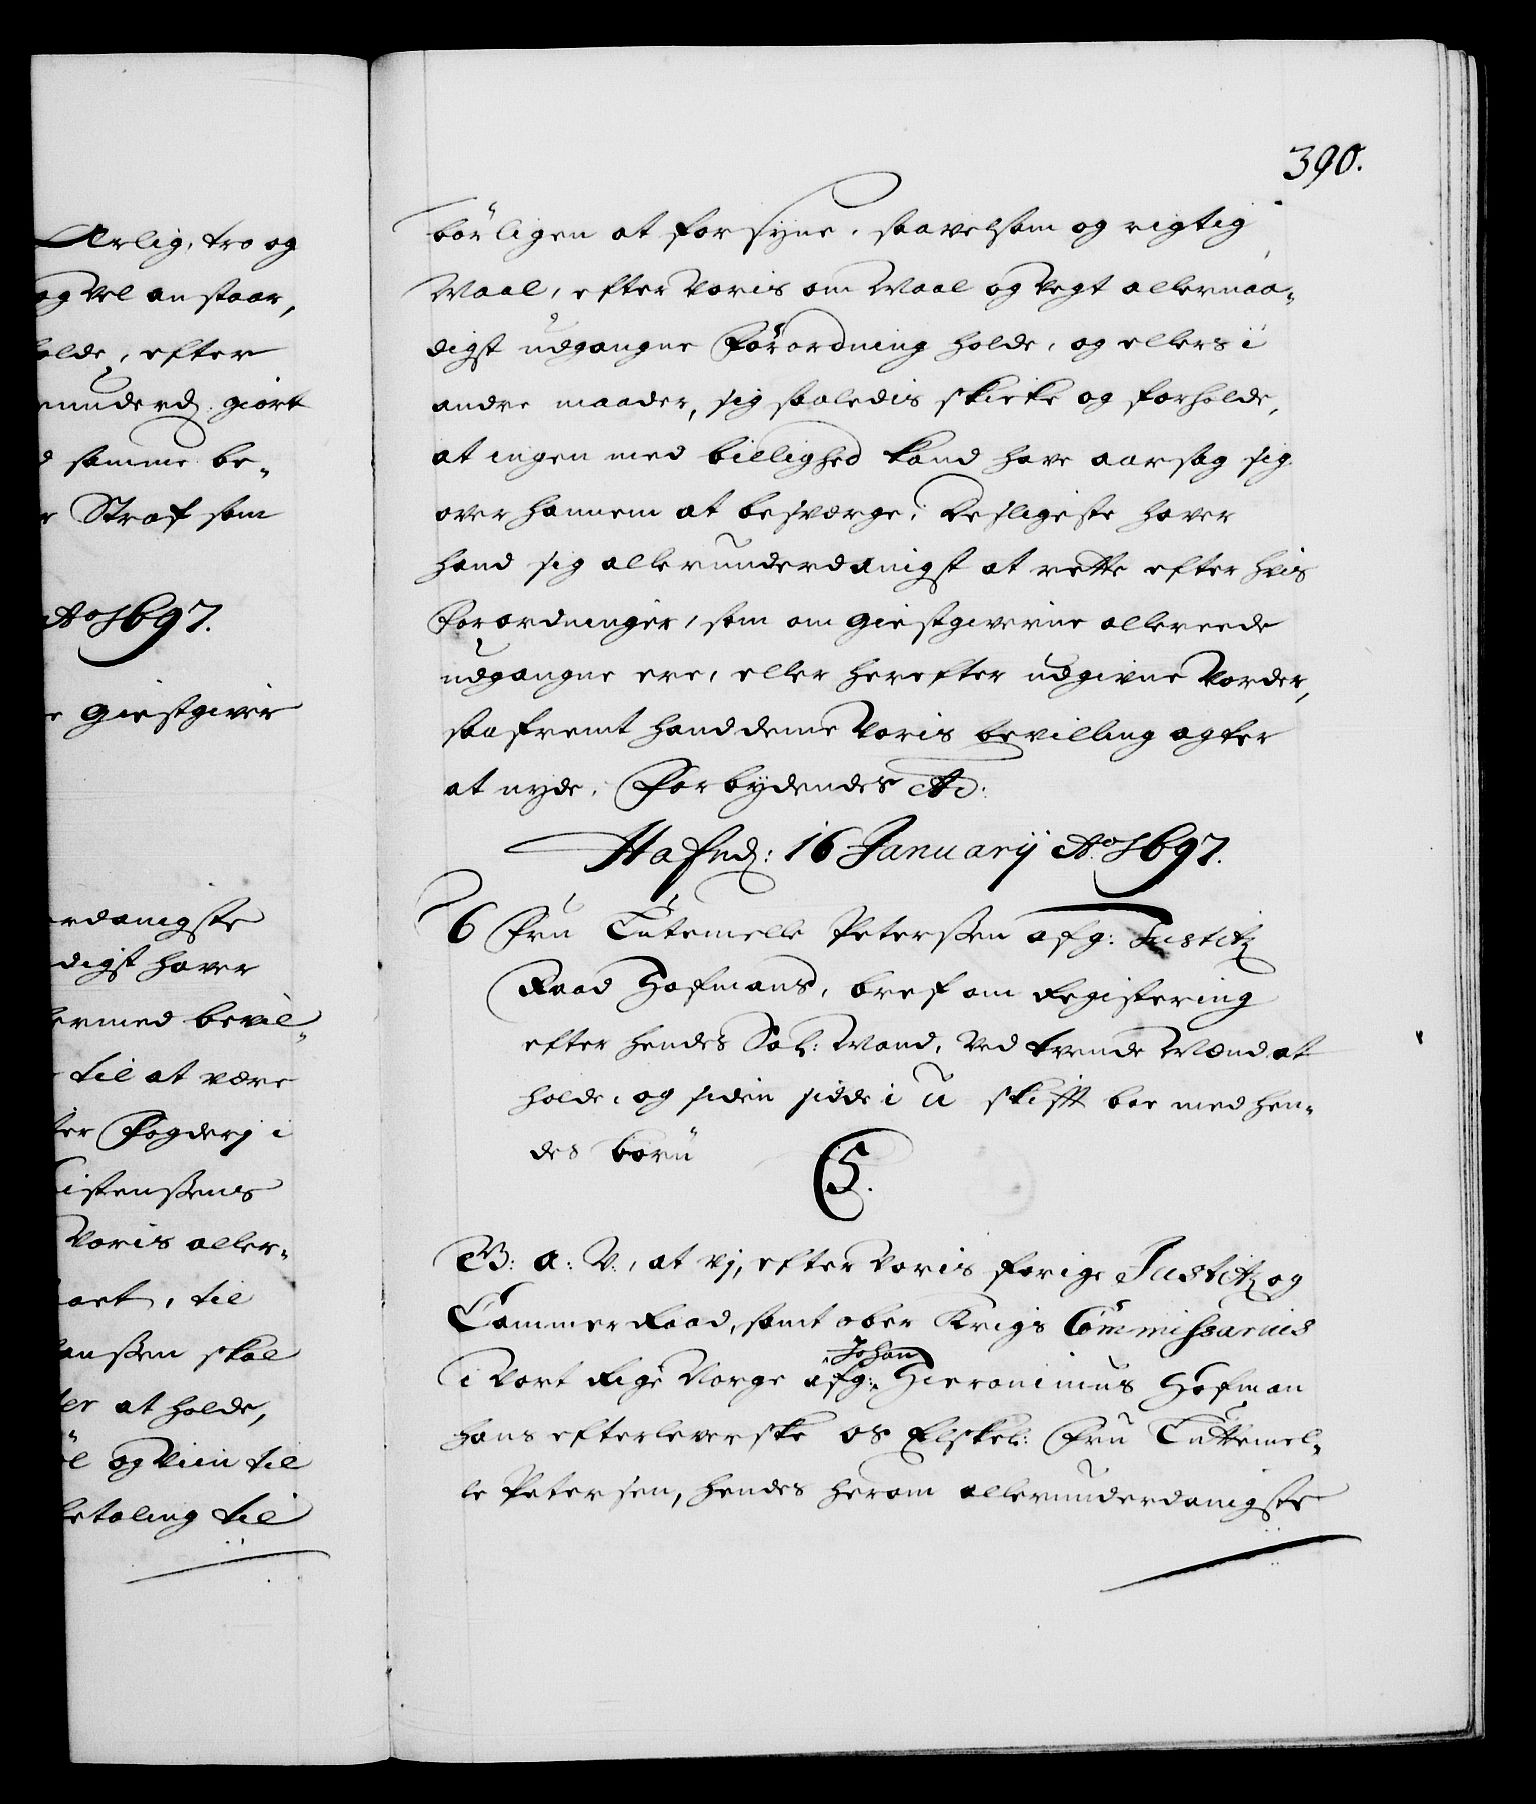 390.
Ærlig, tro og
og Vel anstaar,
holde, efter
erunderd. giört
d samme be-
r Straf som
Ao 1697.
e giestgiver
erdanigste
digst haver
ermed bevil-
e til at være
ter Fogderj i
istenssens
Voris aller-
aet, til
anssen skal
ler at holde,
öl og Viin til
betaling til
börligen at forsÿne, saavelsom og rigtig
Maal, efter Voris om Maal og Vegt allernaa-
digst udgangne Forordning holde, og ellers i
andre maader, sig saaledis skicke og forholde,
at ingen med billighed kand have aarsag sig
over hannem at besværge; Desligeste haver
hand sig allerunderdanigst at rette efter hvis
Forordninger, som om giestgiverne allereede
udgangne ere, eller herefter udgivne Vorder,
saafremt hand denne Voris bevilling agter
at nyde, Forbÿdendes etc:
Hafnd: 16 Januarij Ao 1697.
6 Fru Tutemelle Peterssen afg: Justitz
Raad Hofmans, bref om Registering
efter hendes Sal: Mand, Ved tvende Mænd at
holde, og siden sidde i u-skifft boe med hen-
des börn
C5.
G: a: V., at vj, efter Voris forige Justitz og
Cammer Raad, samt ober Krigs Commissarius
i Vort Rige Norge afg: Johan Hieronimus Hofman
hans efterleverske os Elskel: Fru Tuttemel-
le Petersen, hendes herom allerunderdanigste